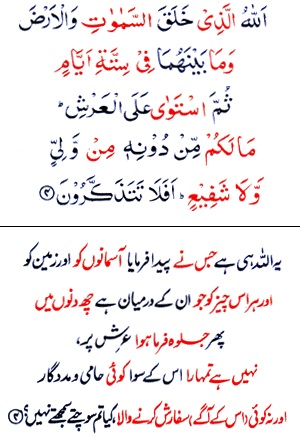 اَللّٰهُ الَّذِیْ خَلَقَ السَّمٰوٰتِ وَالْاَرْضَ
وَمَا بَیْنَهُمَا فِیْ سِتَّةِ اَیَّامٍ
ثُمَّ اسْتَوٰی عَلَی الْعَرْشِ ؕ
مَا لَكُمْ مِّنْ دُوْنِهٖ مِنْ وَّلِیٍّ
وَّلَا شَفِیْعٍ ؕ اَفَلَا تَتَذَكَّرُوْنَ ﴿۴﴾
یہ اللہ ہی ہے جس نے پیدا فرمایا آسمانوں کو اور زمین کو
اور ہر اس چیز کو جو ان کے درمیان ہے چھ دنوں میں
پھر جلوہ فرما ہوا عرش پر،
نہیں ہے تمہارا اس کے سوا کوئی حامی و مددگار
اور نہ کوئی (اس کے آگے) سفارش کرنے والا، کیا تم سوچتے سمجھتے نہیں؟ ﴿۴﴾